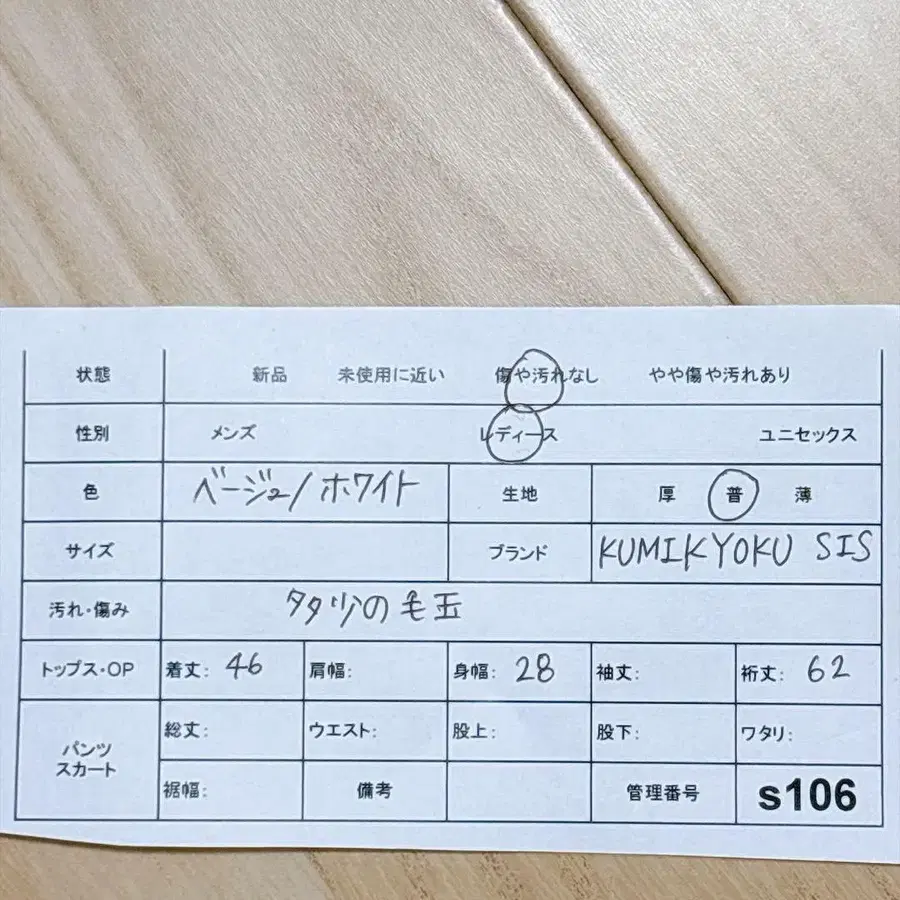 状態 新品 未使用に近い 傷や汚れなし やや傷や汚れあり
性別 メンズ レディース ユニセックス
色 ベージュ/ホワイト 生地 厚 普 薄
サイズ ブランド KUMIKYOKU SIS
汚れ・傷み 多少の毛玉
トップス・OP 着丈: 46 肩幅: 身幅: 28 袖丈: 裄丈: 62
パンツ スカート 総丈: ウエスト: 股上: 股下: ワタリ:
裾幅: 備考 管理番号 s106